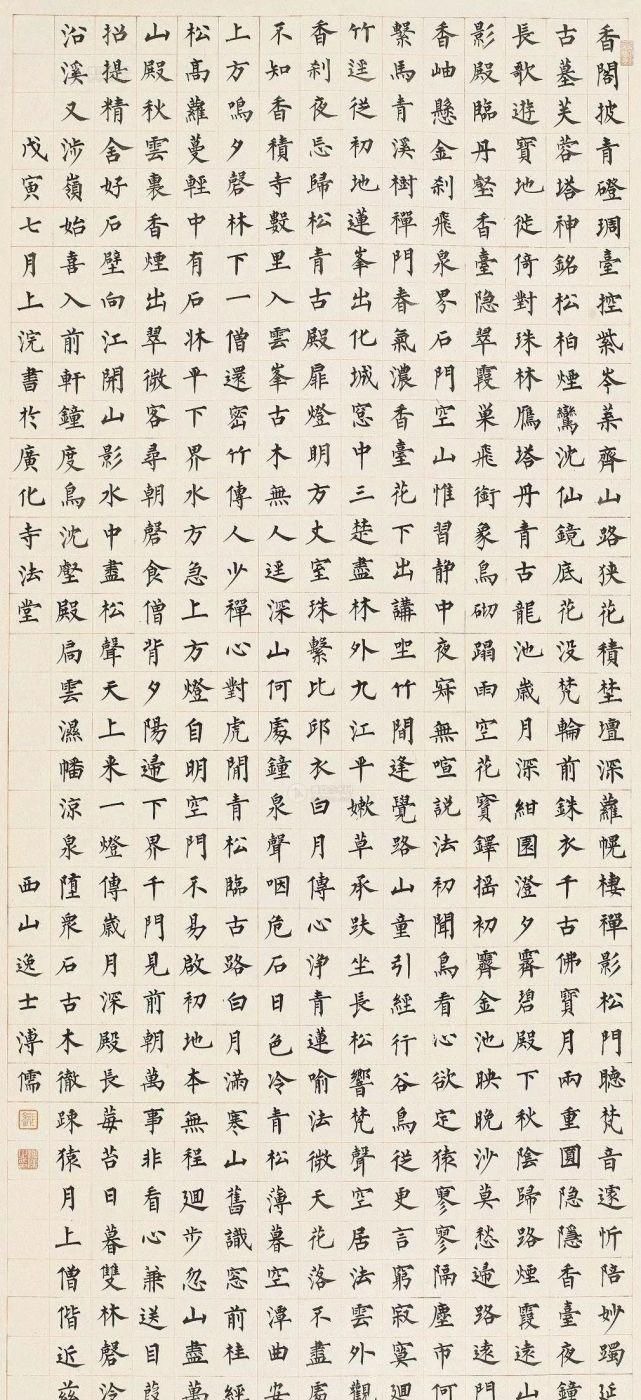 香閣披青磴琱臺控紫岑葉齊山路狹花積埜壇深蘿幌棲禪影松門聽梵音遽忻陪妙躅延
古墓芙蓉塔神銘松柏煙鸞沈仙鏡底花没梵輪前銖衣千古佛寶月兩重圓隱隱香臺夜鐘
長歌遊寶地徙倚對珠林鴈塔丹青古龍池歲月深紺園澄夕霽碧殿下秋陰歸路煙霞遠山
影殿臨丹壑香臺隱翠霞巢飛銜象鳥砌蹋雨空花寶鐸摇初霽金池映晚沙莫愁歸路遠門
香岫懸金刹飛泉界石門空山惟習静中夜寂無喧説法初聞鳥看心欲定猿寥寥隔塵市何
繫馬青溪樹禪門春氣濃香臺花下出講坐竹間逢覺路山童引經行谷鳥從更言窮寂寞迴
竹逕從初地蓮峯出化城窓中三楚盡林外九江平嫰草承趺坐長松響梵聲空居法雲外觀
香刹夜忘歸松青古殿扉燈明方丈室珠繫比邱衣白月傳心浄青蓮喻法微天花落不盡處
不知香積寺數里入雲峯古木無人逕深山何處鐘泉聲咽危石日色冷青松薄暮空潭曲安
上方鳴夕磬林下一僧還密竹傳人少禪心對虎閒青松臨古路白月滿寒山舊識窓前桂經
松高蘿蔓輕中有石牀平下界水方急上方燈自明空門不易啟初地本無程迴步忽山盡萬
山殿秋雲裏香煙出翠微客尋朝磬食僧背夕陽歸下界千門見前朝萬事非看心兼送目葭
招提精舍好石壁向江開山影水中盡松聲天上来一燈傳歲月深殿長莓苔日暮雙林磬泠
沿溪又涉嶺始喜入前軒鐘度鳥沈壑殿扃雲濕幡涼泉墮衆石古木徹疎猿月上僧偕近茲
戊寅七月上浣書於廣化寺法堂 西山逸士溥儒